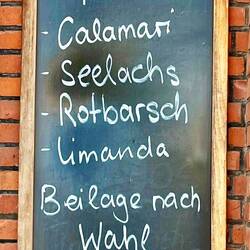 - Calamari
- Seelachs
- Rotbarsch
- Limanda
Beilage nach
Wahl